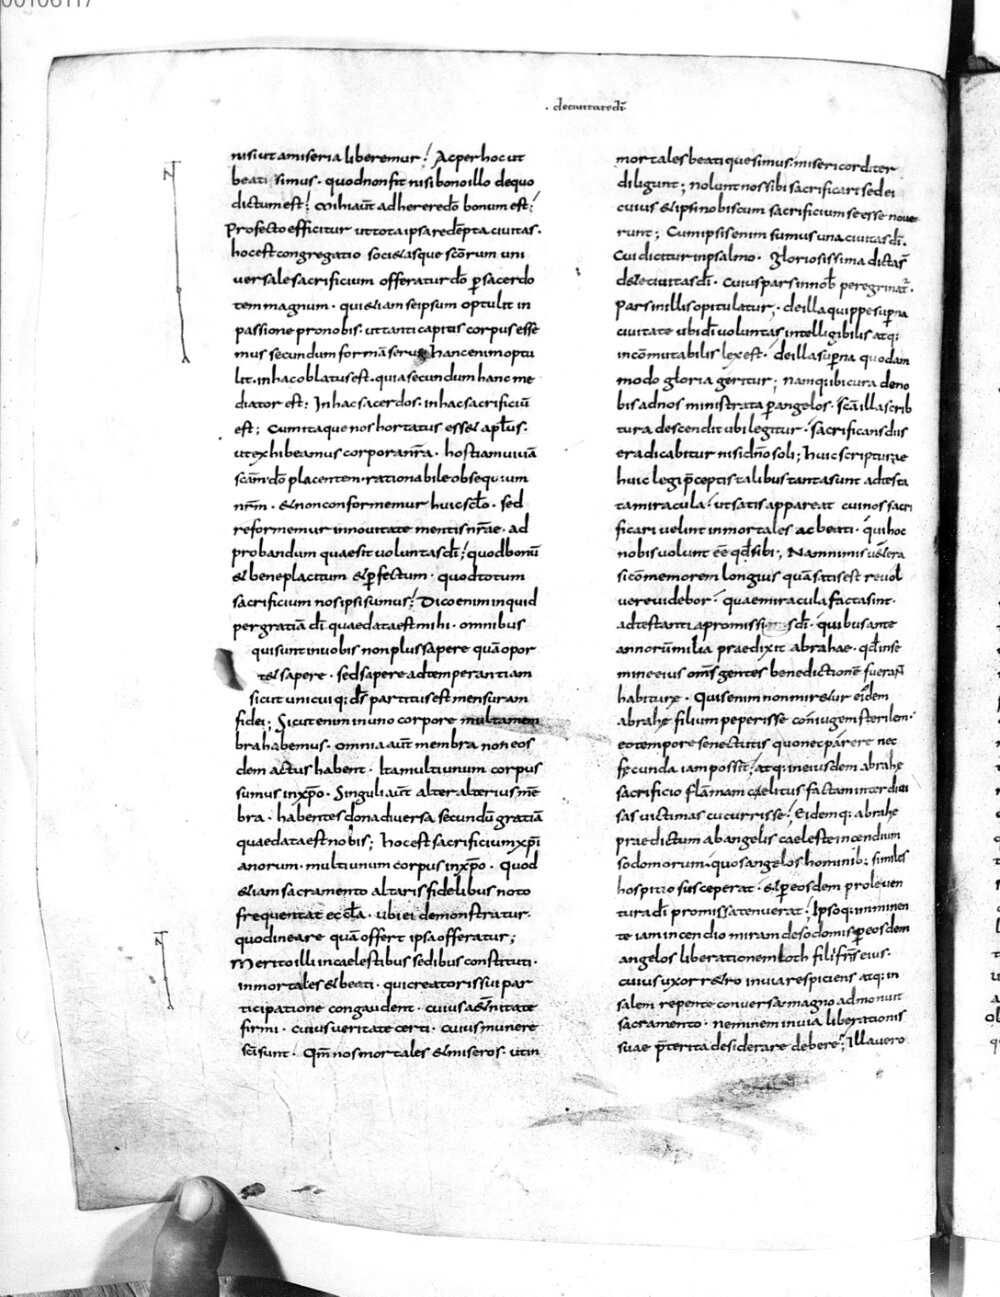 · deciuitatedi̅
nisi ut a miseria liberemur; Ac per hoc ut
beati simus · quod non fit nisi bono illo de quo
dictum est; Mihi aut̅ adherere do̅ bonum est;
Profecto efficitur ut tota ipsa rede̅pta ciuitas ·
hoc est congregatio societasque sc̅orum uni
uersale sacrificium offeratur do̅ p̲ sacerdo
tem magnum · qui etiam se ipsum optulit in
passione pro nobis · ut tanti capitis corpus esse
mus secundum forma̅ serui hanc enim optu
lit · in hac oblatus est · quia secundum hanc me
diator est; In hac sacerdos · in hac sacrificiu̅
est; Cum itaque nos hortatus esset apl̅us ·
ut exhibeamus corpora nr̅a · hostiam uiua̅
sc̅am do̅ placentem · rationabile obsequium
nr̅m · et non conformemur huic sc̅lo · sed
reformemur in nouitate mentis nr̅ae · ad
probandum quae sit uoluntas di̅; quod bonu̅
et beneplacitum et p̲fectum · quod totum
sacrificium nos ipsi sumus; Dico enim inquid
per gratia̅ di̅ quae data est mihi · omnibus
qui sunt in uobis non plus sapere qua̅ opor
tet sapere · sed sapere ad temperantiam
sicut unicuiq; ds̅ partitus est mensuram
fidei; Sicut enim in uno corpore multa mem
bra habemus · omnia aut̅ membra non eos
dem actus habent · Ita multi unum corpus
sumus in xp̅o · Singuli aut̅ alter alterius me̅
bra · habentes dona diuersa secundu̅ gratia̅
quae data est nobis; hoc est sacrificium xp̅i
anorum · multi unum corpus in xp̅o · Quod
etiam sacramento altaris fidelibus noto
frequentat eccl̅a · ubi ei demonstratur ·
quod in ea re qua̅ offert ipsa offeratur;
Merito illi in caelestibus sedibus constituti ·
inmortales et beati · qui creatoris sui par
ticipatione congaudent · cuius aet̅nitate
firmi · cuius ueritate certi · cuius munere
sc̅i sunt · Qm̅ nos mortales et miseros · ut in
mortales beatique simus · misericorditer
diligunt; nolunt nos sibi sacrificari sed ei
cuius et ipsi nobiscum sacrificium se esse noue
runt; Cum ipsis enim sumus una ciuitas di̅ ·
Cui dicitur in psalmo · gloriosissima dicta s̅
de te ciuitas di̅ · Cuius pars in nob̅ peregrinat̅ ·
Pars in illis opitulatur; · de illa quippe sup̲na
ciuitate ubi di̅ uoluntas intelligibilis atq;
inco̅mutabilis lex est · de illa sup̲na quodam
modo gloria geritur; namq; ibi cura de no
bis ad nos ministrata p̲ angelos · sc̅a illa scrib
tura descendit ubi legitur · sacrificans diis
eradicabitur nisi dn̅o soli; huic scripturae
huic legi p̅ceptis talibus tanta sunt adtesta
ta miracula; ut satis appareat cui nos sacri
ficari uelint inmortales ac beati · qui hoc
nobis uolunt e̅e̅ qd̅ sibi; Nam nimis uetera
si co̅memorem longius qua̅ satis est reuol
uere uidebor · quae miracula facta sint ·
adtestantia promissionis di̅ · quibus ante
annoru̅ milia praedixit abrahae · qd̅ in se
mine eius om̅s gentes benedictione̅ fueran̅
habiturę · Quis enim non miretur eide̅m
abrahę filium peperisse coniugem sterilem ·
eo tempore senectutis quo nec parere nec
fęcunda iam possit; atq; in eiusdem abrahę
sacrificio fla̅mam caelitus factam inter diui
sas uictimas cucurrisse; Eidemq; abrahę
praedictum ab angelis caeleste incendium
sodomorum · quos angelos hominib; similes
hospitio susceperat · et p̲ eos de prole uen
tura di̅ promissa tenuerat; Ipsoq; imminen
te iam incendio miram de sodomis p̲ eosdem
angelos liberationem Loth filii fr̅is eius ·
cuius uxor retro in uia respiciens atq; in
salem repente conuersa · magno admonuit
sacramento · neminem in uia liberationis
suae p̅terita desiderare debere; Illa uero